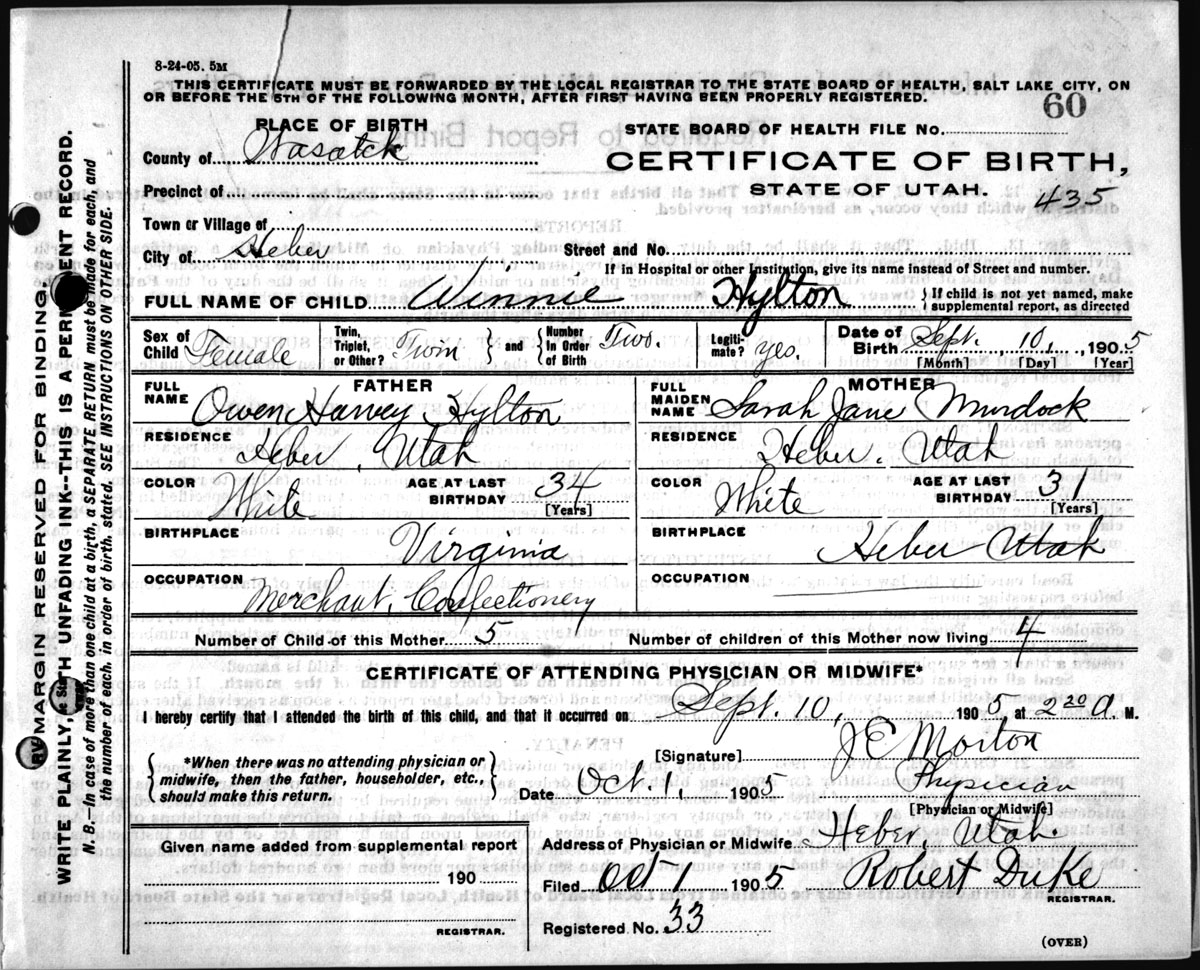 8-24-05. 5M
THIS CERTIFICATE MUST BE FORWARDED BY THE LOCAL REGISTRAR TO THE STATE BOARD OF HEALTH, SALT LAKE CITY, ON
OR BEFORE THE 5TH OF THE FOLLOWING MONTH, AFTER FIRST HAVING BEEN PROPERLY REGISTERED.
60
PLACE OF BIRTH
STATE BOARD OF HEALTH FILE No.
County of Wasatck
CERTIFICATE OF BIRTH,
Precinct of
STATE OF UTAH.
435
Town or Village of
City of Heber
Street and No.
If in Hospital or other Institution, give its name instead of Street and number.
FULL NAME OF CHILD Winnie Hylton { If child is not yet named, make
supplemental report, as directed
Sex of Child Female
Twin, Triplet, or Other? Twin
} and {
Number In Order of Birth Two.
Legiti-mate? yes.
Date of Birth Sept. 10, 1905
[Month] [Day] [Year]
FATHER
FULL NAME Owen Harvey Hylton
MOTHER
FULL MAIDEN NAME Sarah Jane Murdock
RESIDENCE Heber, Utah
RESIDENCE Heber, Utah
COLOR White
AGE AT LAST BIRTHDAY 34
[Years]
COLOR White
AGE AT LAST BIRTHDAY 31
[Years]
BIRTHPLACE Virginia
BIRTHPLACE Heber Utah
OCCUPATION Merchant, Confectionery
OCCUPATION
Number of Child of this Mother 5
Number of children of this Mother now living 4
CERTIFICATE OF ATTENDING PHYSICIAN OR MIDWIFE*
I hereby certify that I attended the birth of this child, and that it occurred on Sept. 10, 1905, at 2 20 a M.
*When there was no attending physician or
midwife, then the father, householder, etc.,
should make this return.
[Signature] J E Morton
Date Oct. 1, 1905
Physician
[Physician or Midwife]
Given name added from supplemental report
190
REGISTRAR.
Address of Physician or Midwife Heber, Utah.
Filed Oct 1 1905 Robert Duke
REGISTRAR.
Registered No. 33
(OVER)
MARGIN RESERVED FOR BINDING.
WRITE PLAINLY, WITH UNFADING INK--THIS IS A PERMANENT RECORD.
N. B.—In case of more than one child at a birth, a SEPARATE RETURN must be made for each, and
the number of each, in order of birth, stated. SEE INSTRUCTIONS ON OTHER SIDE.